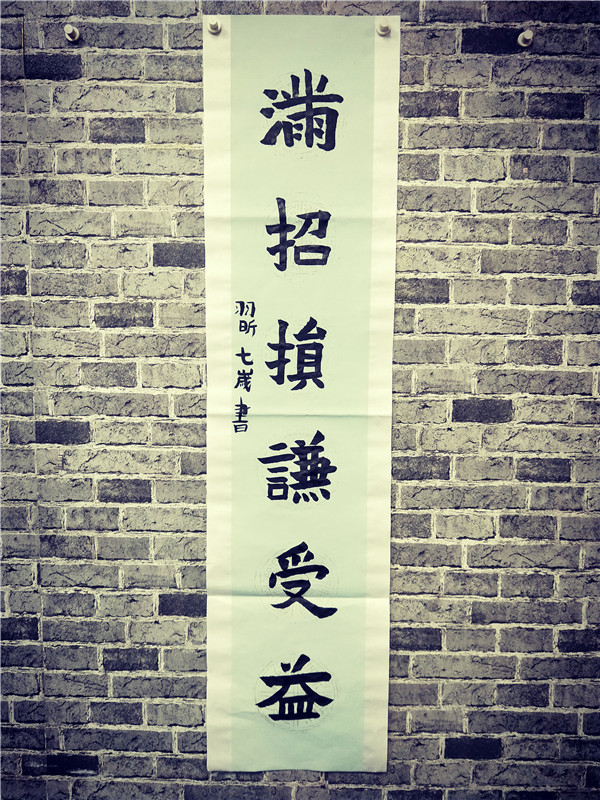 滿招損謙受益
羽昕七歲書